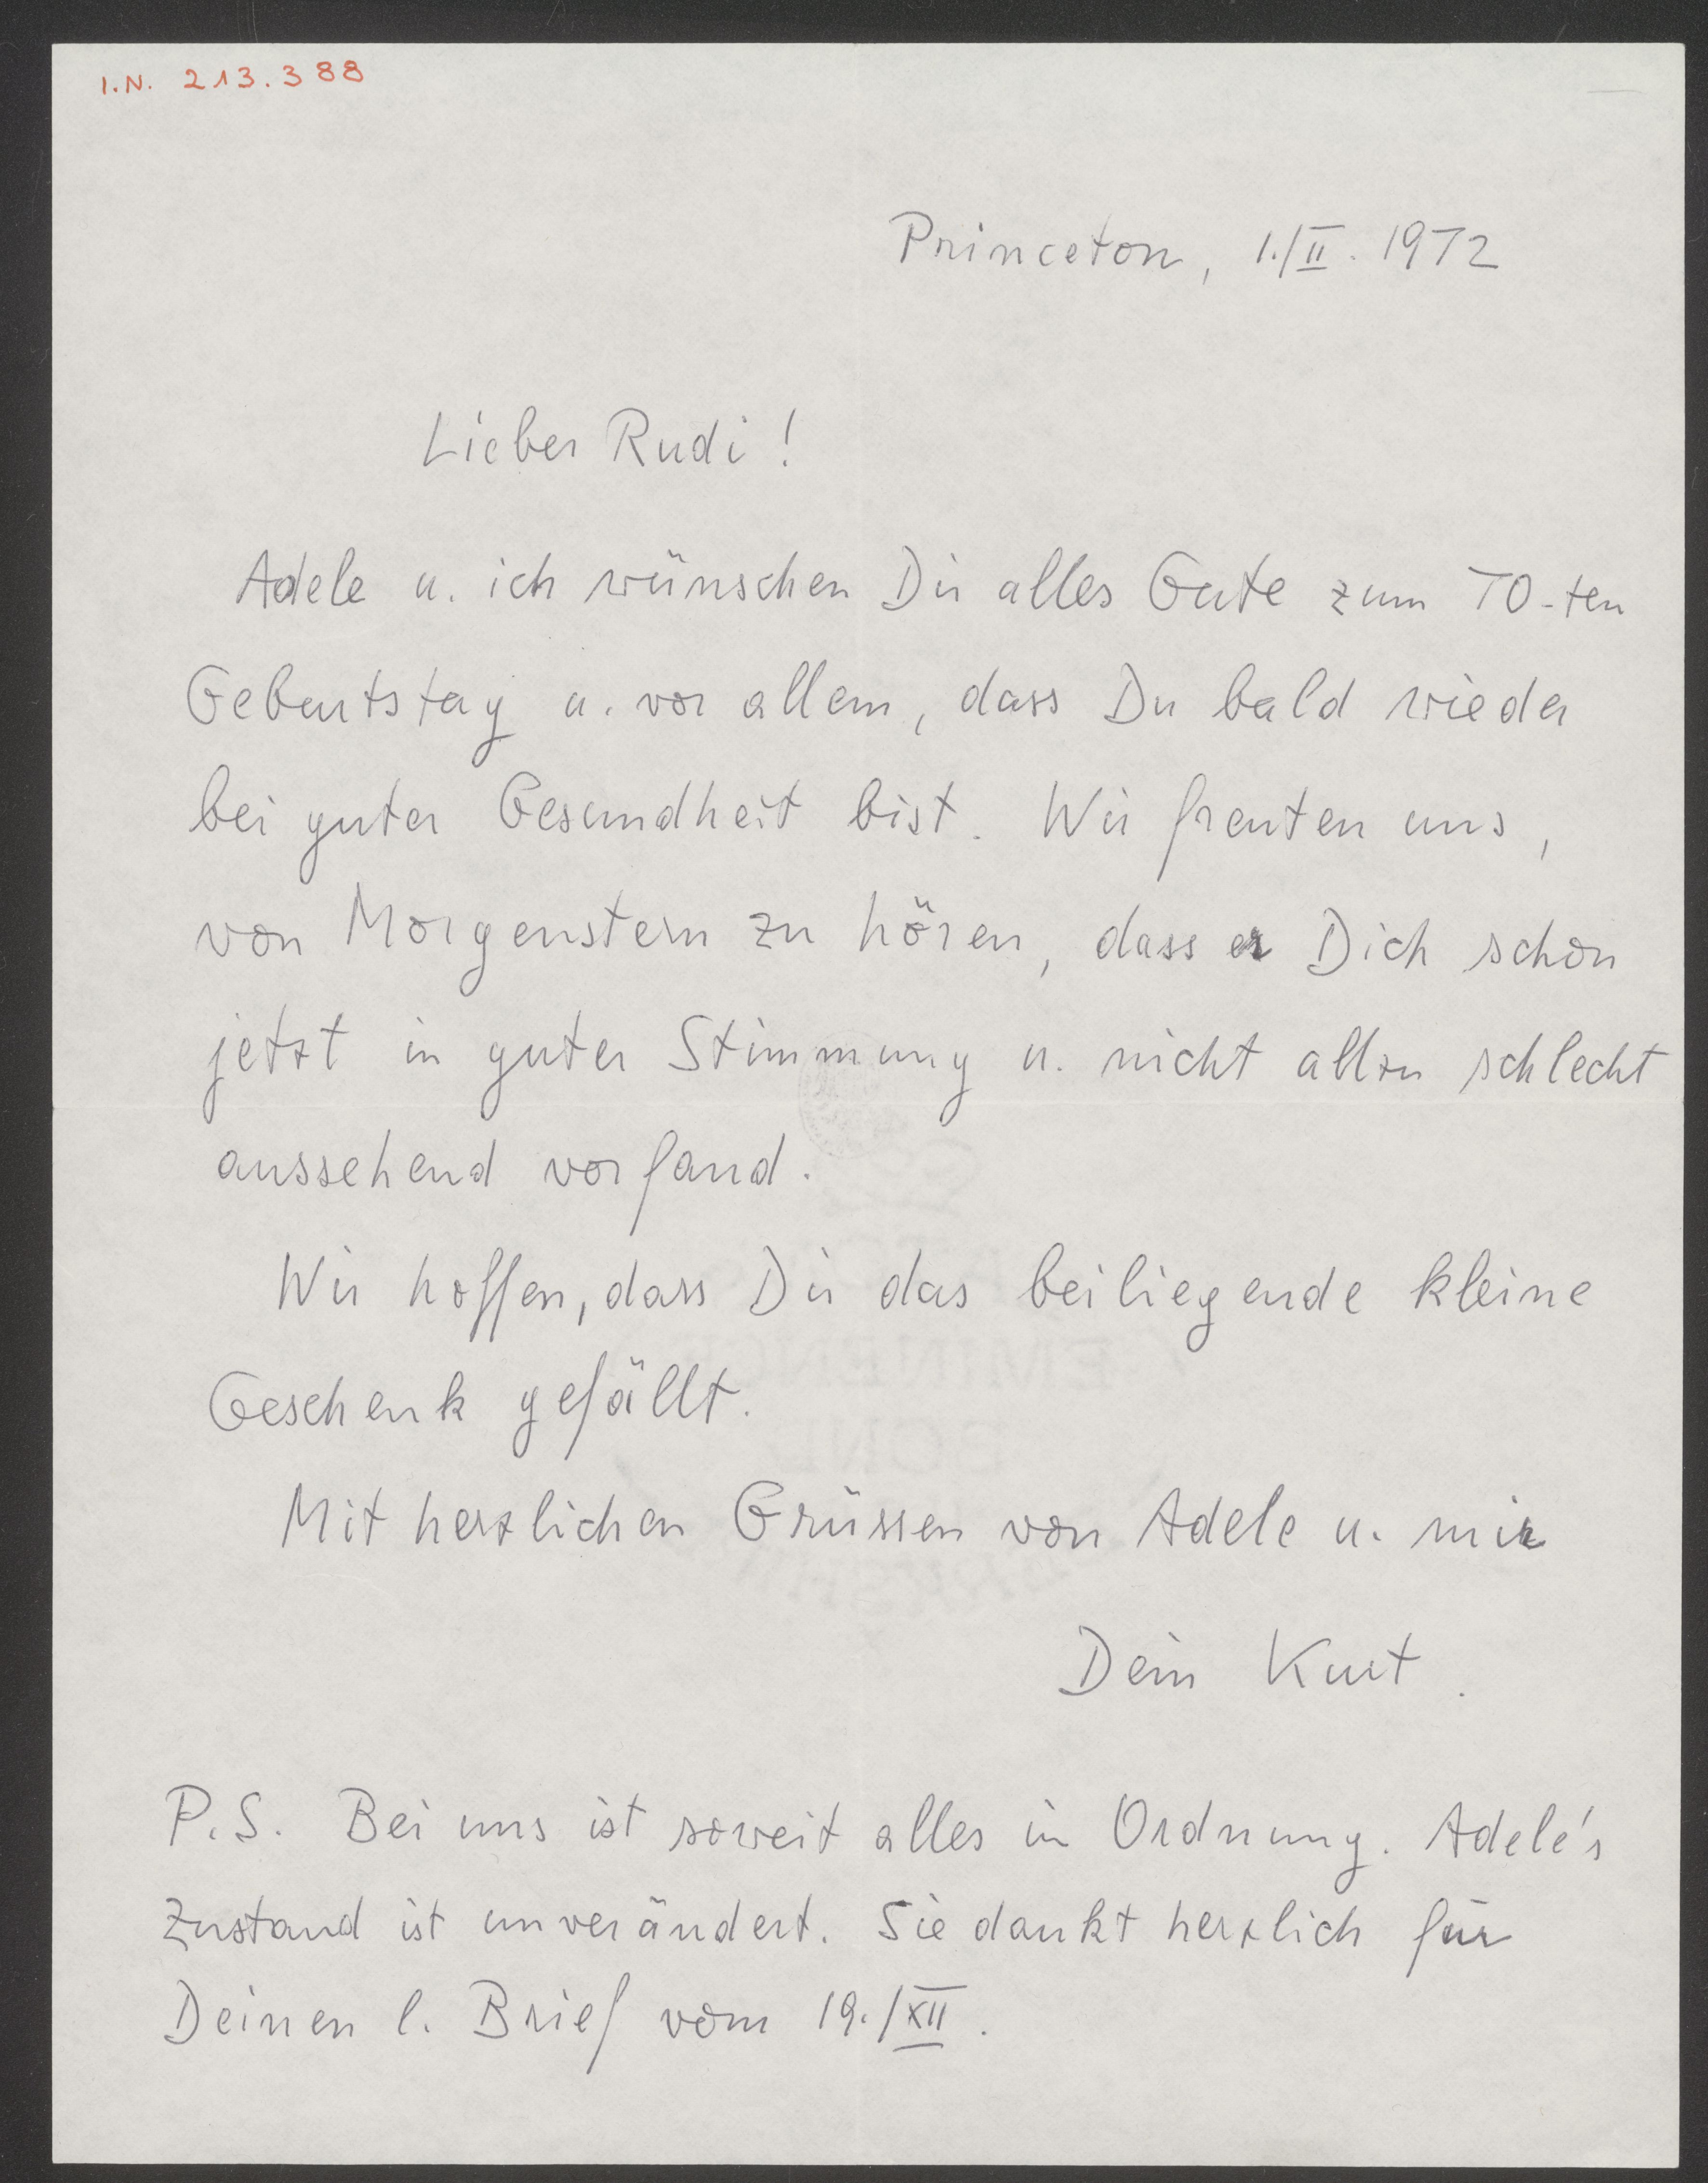 I.N. 213.388
Princeton, 1./II. 1972
Lieber Rudi!
Adele u. ich wünschen Dir alles Gute zum 70-ten
Geburtstag u. vor allem, dass Du bald wieder
bei guter Gesundheit bist. Wir freuten uns,
von Morgenstern zu hören, dass er Dich schon
jetzt in guter Stimmung u. nicht allzu schlecht
aussehend vorfand.
Wir hoffen, dass Dir das beiliegende kleine
Geschenk gefällt.
Mit herzlichen Grüssen von Adele u. mir
Dein Kurt.
P.S. Bei uns ist soweit alles in Ordnung. Adele's
Zustand ist unverändert. Sie dankt herzlich für
Deinen l. Brief vom 19./XII.